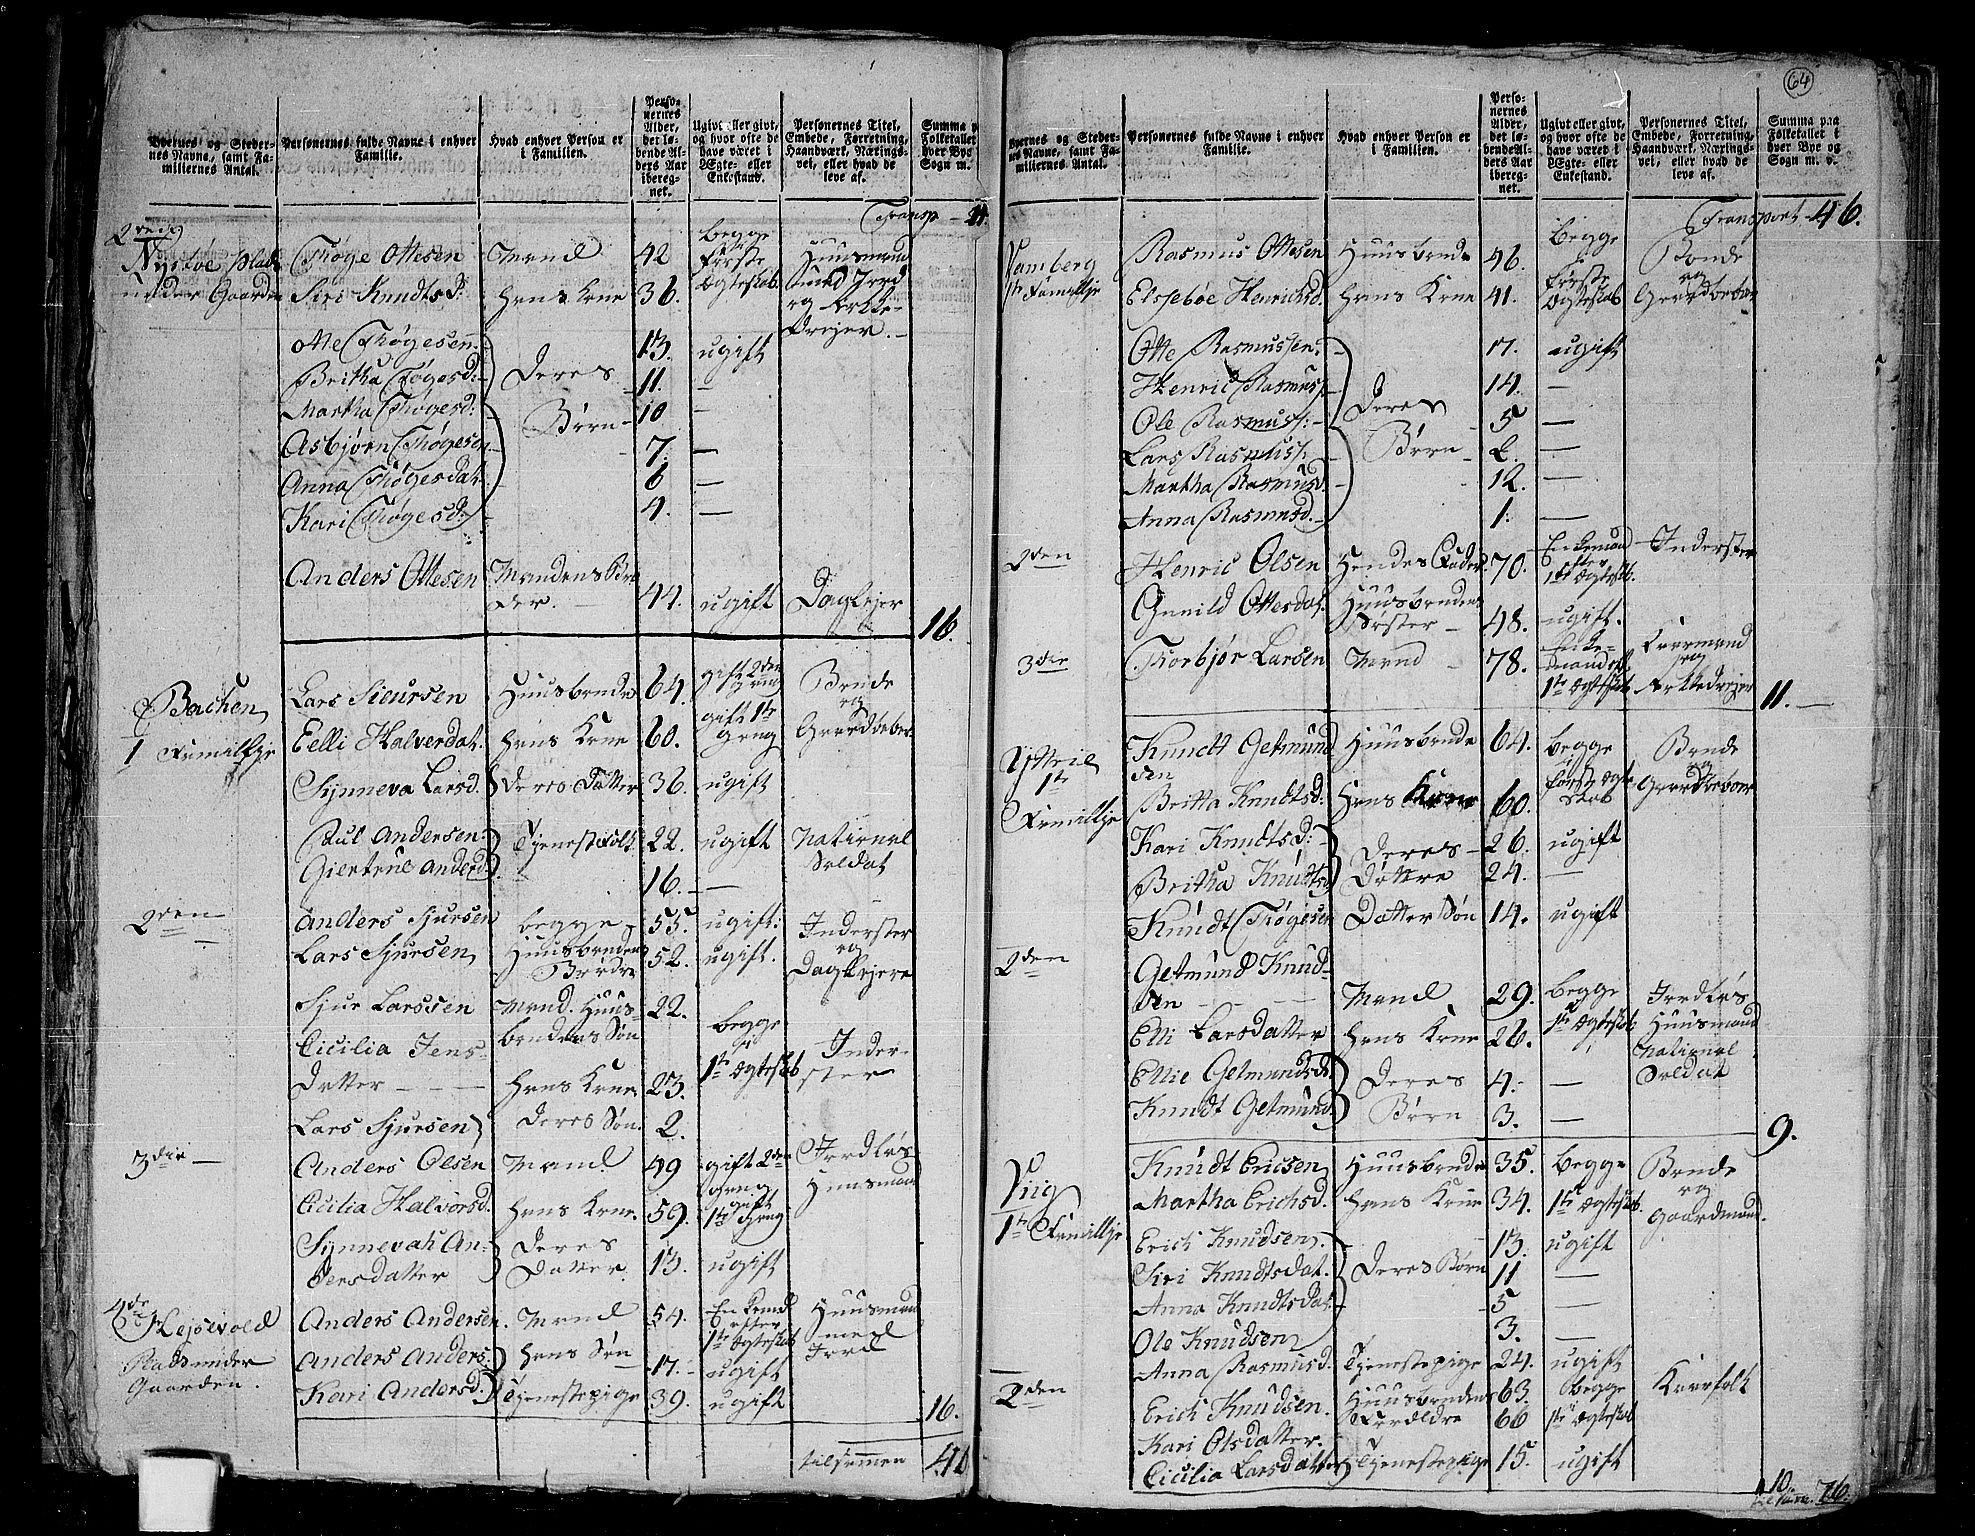 Byernes og Steder-
nes Navne, samt Fa-
miliernes Antal.
Personernes fulde Navne i enhver
Familie.
Hvad enhver Person er
i Familien.
Perso-
nernes
Alder,
det lø-
bende Al-
ders Aar
ibereg-
net.
Ugivt eller givt,
og hvor ofte de
have været i
Ægte- eller
Enkestand.
Personernes Titel,
Embede, Forretning,
Haandværk, Nærings-
vei, eller hvad de
leve af.
Summa
Folketallet
hver Bye
Sogn m.
Transp
2den
under Gaarden
Thøge Ottesen Mand 42 begge
første
Ægteskab Huusmand
med Jord
og
Siri Knudtsd. Hans Kone 36.
Otte Thøgesen 13. ugift
Britha Tøgesd: Deres 11. —
Martha Thøgesd: Børn 10 —
Asbjørn Thøgesen 7. —
Anna Thøgesdat: 6 —
Kari Thøgesd: 4. —
Anders Ottesen Mandens Bro
der. 44. ugift Daglejer
16.
Bachen
1 Familije
Lars Sieursen Huusbonde 64. gift 2den
Gang Bonde
og
Gaardbeboer
Eelli Halverdat. Hans Kone 60. gift 1te
Gang
Synneva Larsd. Deres Datter 36. ugift
Paul Andersen Tjenestefolk 22. ugift National
Soldat
Giertrue Andersd. 16. —
2den
Anders Sjursen begge 55. ugift: Inderster
og
Daglejere
Lars Sjursen Huusbondens
Brødre 52. ugift.
Sjur Larssen Mand. Huus-
bondens Søn 22. begge
1te Ægteskab Inder-
ster
Cicilia Jens-
datter — — — Hans Kone 23.
Lars Sjursen Deres Søn. 2.
3die —
Anders Olsen Mand 49 gift 2den
Gang Jordløs
Huusmand
Cicilia Halvorsd. Hans Kone. 59. gift
1te Gang
Synnevah An-
dersdatter Deres
Datter. 13. ugift
4de
Hejsevold
Plads under
Gaarden.
Anders Andersen. Mand 54. Enkemand
efter
1te Ægteskab Huusmand
med
Jord
Anders Anders. Hans Søn 17. ugift
Kari Andersd. Tjenestepige 39. ugift
16.
tilsammen 46
64
Byernes og Steder-
nes Navne, samt Fa-
miliernes Antal.
Personernes fulde Navne i enhver
Familie.
Hvad enhver Person er
i Familien.
Perso-
nernes
Alder,
det lø-
bende Al-
ders Aar
ibereg-
net.
Ugivt eller givt,
og hvor ofte de
have været i
Ægte- eller
Enkestand.
Personernes Titel,
Embede, Forretning,
Haandværk, Nærings-
vei, eller hvad de
leve af.
Summa paa
Folketallet i
hver Bye og
Sogn m. v.
Transport 46.
1te Familje
Rasmus Ottesen Huusbonde 46. begge
første
Ægteskab Bonde
og
Gaardbeboer
Elsseböe Henrichsd. Hans Kone 41.
Otte Rasmussen. 17. ugift
Henric Rasmuss. 14. —
Ole Rasmuss: Deres 5 —
Lars Rasmuss: Børn 2. —
Martha Rasmusd. 12. —
Anna Rasmusd. 1. —
2den
Henric Olsen Hendes Fader 70. Enkemand
efter
1te Ægteskab. Inderster
Gunild Ottesdat. Huusbondens
Søster 48. ugift.
3die
Torbjør Larsen Mand 78. Enke-
mand eft.
1te Ægteskab Kaarmand
og
11.
1te
Familije
Knudt Getmund
sen Huusbonde 64. begge
første Ægte
skab Bonde
og
Gaardbeboer
Britta Knudtsd: Hans Kone 60.
Kari Knudtsd: Deres 26. ugift
Britha Knudtsd Døttre 24. —
Knudt Thøgesen Datter Søn 14. ugift
2den
Getmund Knud-
sen Mand 29. begge
1te Ægteskab Jordløs
Huusmand
National
Soldat
Elli Larsdatter Hans Kone 26.
Ellie Getmundsd. Deres 4. —
Knudt Getmund. Børn 3. —
9.
1te Familije
Knudt Ericsen Huusbonde 35. begge
1te Ægteskab. Bonde
og
Gaardmand.
Martha Erichsd. Hans Kone 34.
Erich Knudsen. 13. ugift
Siri Knudtsdat. Deres Børn 11 —
Anna Knudtsdat: 5 —
Ole Knudsen 3. —
Anna Rasmusd. Tjenestepige 24. ugift
2den
Erich Knudsen. Huusbondens
Forældre 63. begge
1te Ægteskab Kaarfolk
Kari Olsdatter. 66
Cicilia Larsdatter Tjenestepige 15. ugift
10.
76.